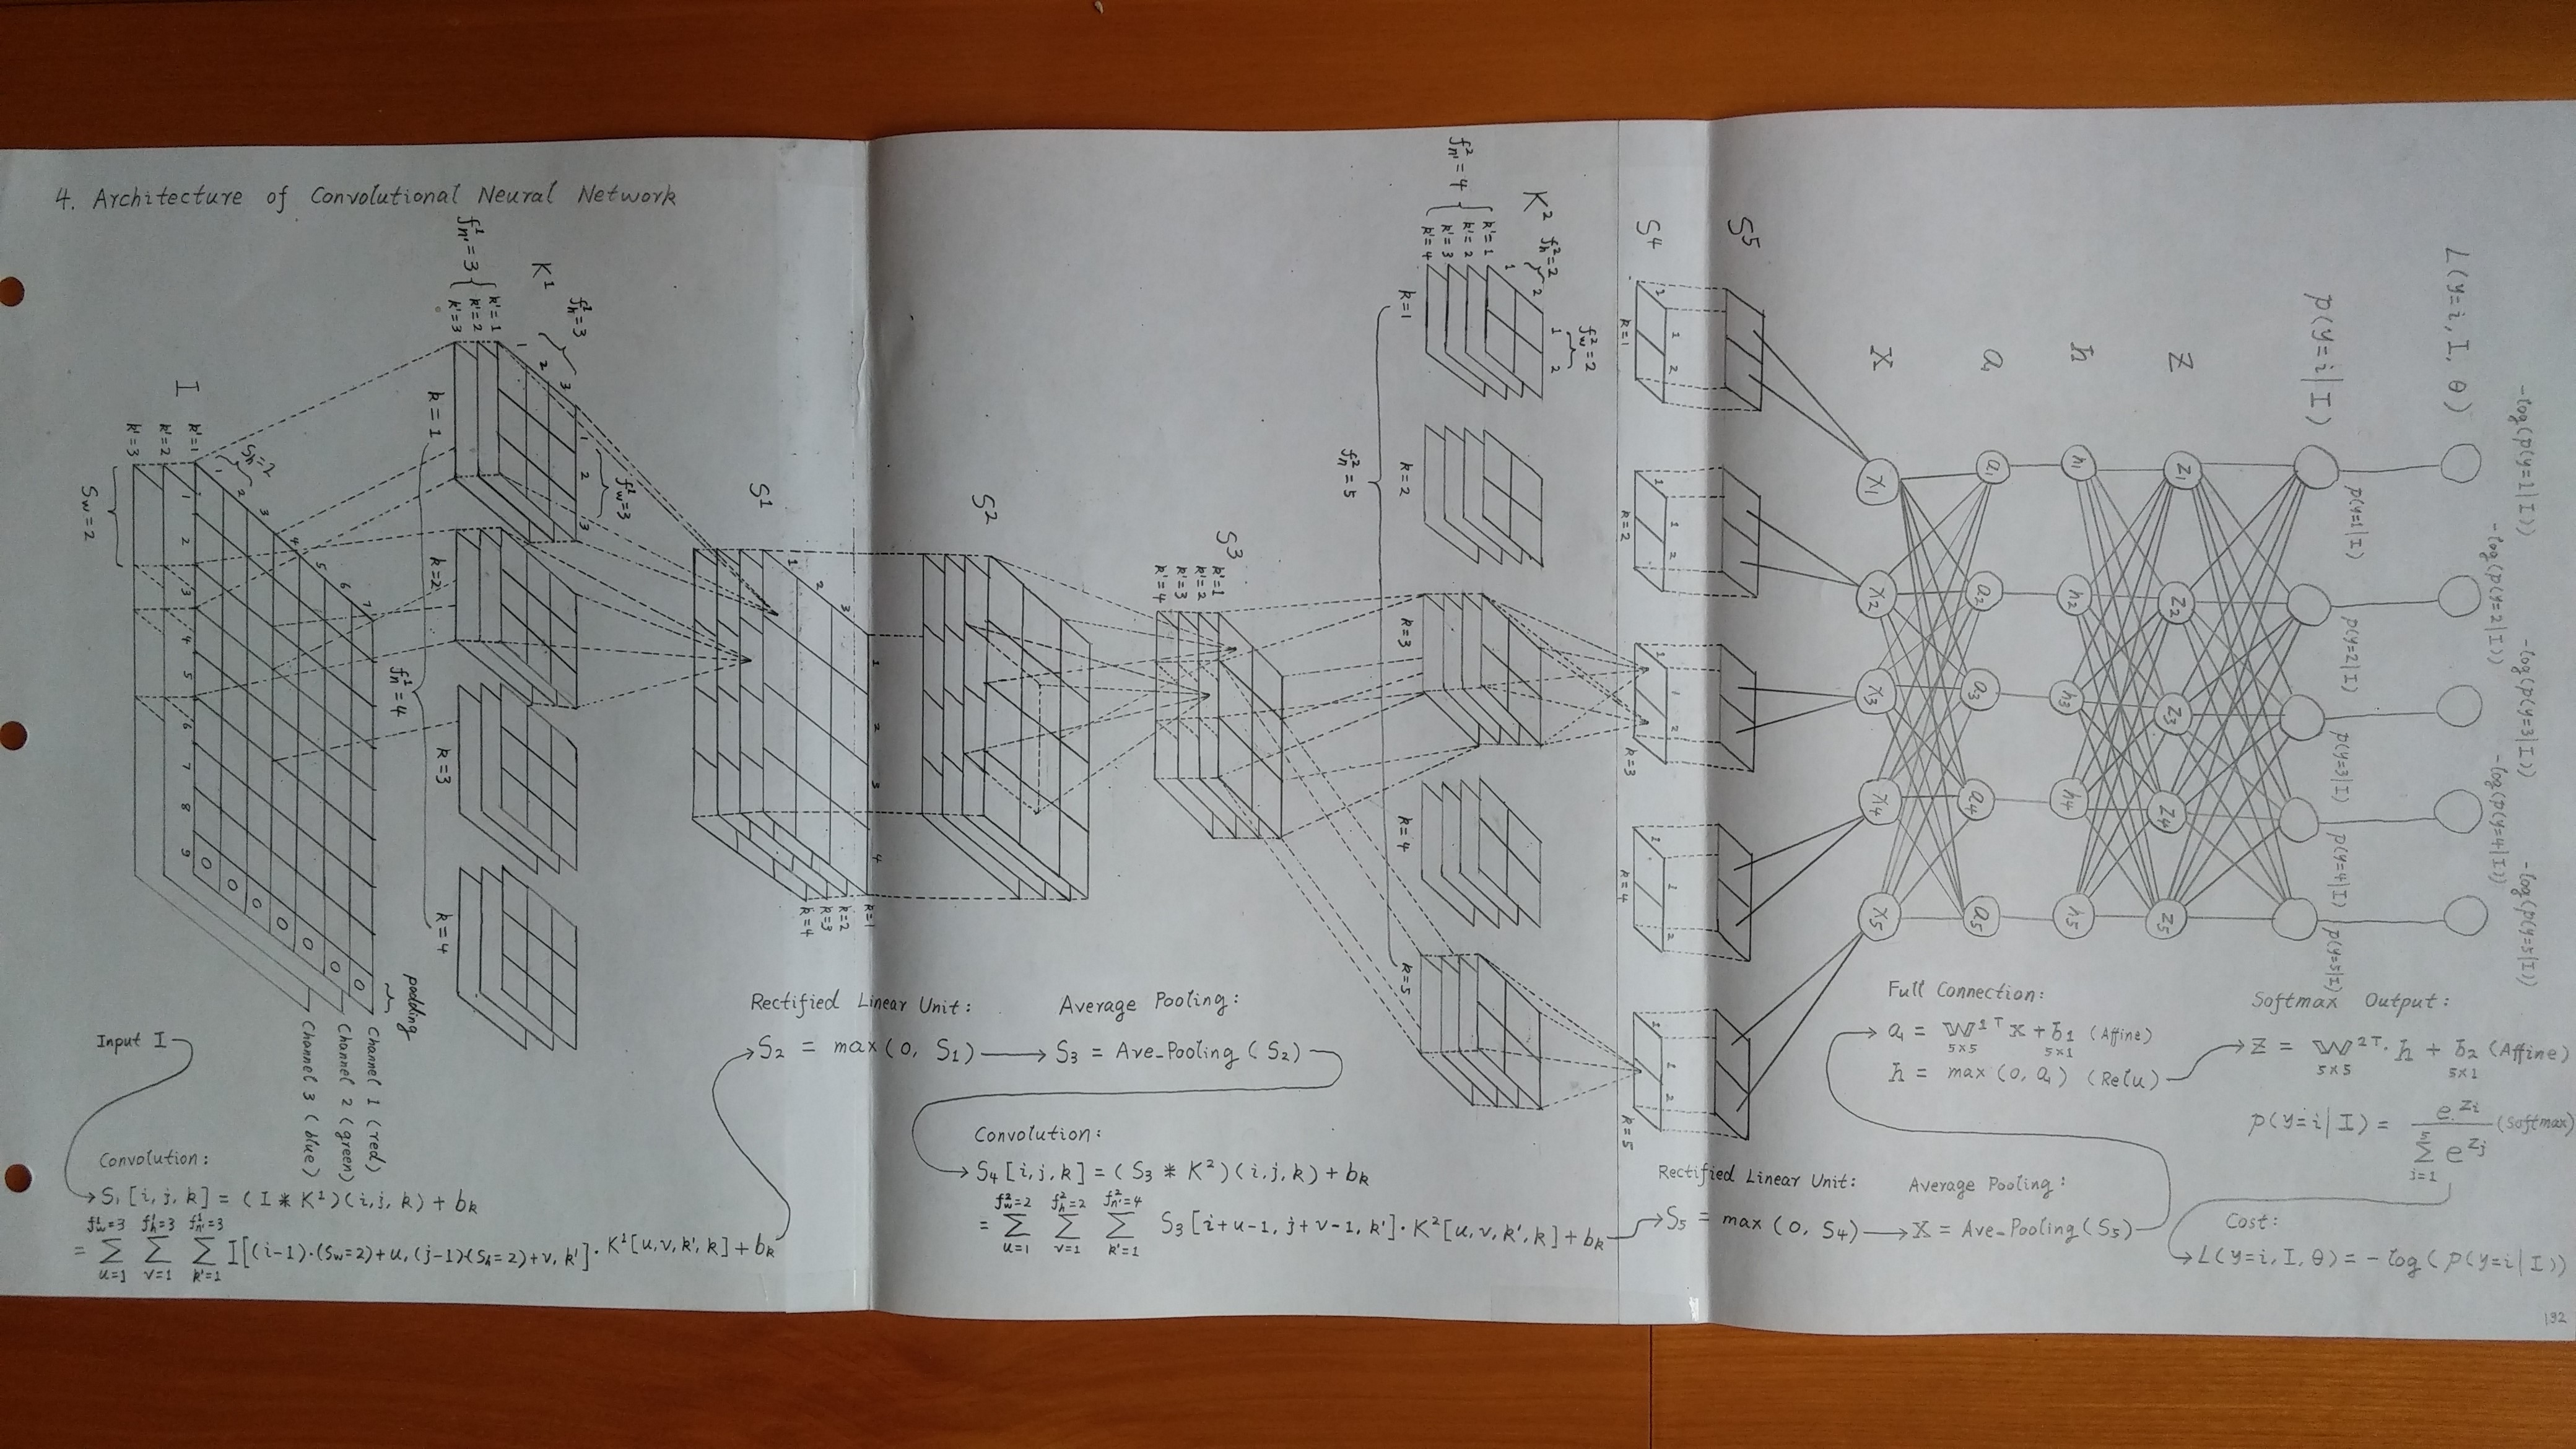 4. Architecture of Convolutional Neural Network
I
k'=1
k'=2
k'=3
Sh=2
Sw=2
1 2 3 4 5 6 7
1 2 3 4 5 6 7 8 9
0 0 0 0 0 0 0
padding
Channel 1 (red)
Channel 2 (green)
Channel 3 (blue)
K¹
f¹n'=3
k'=1
k'=2
k'=3
f¹h=3
1 2 3
f¹w=3
1 2 3
k=1
k=2
k=3
k=4
f¹n=4
S1
1 2 3
1 2 3 4
k=1
k=2
k=3
k=4
S2
S3
k'=1
k'=2
k'=3
k'=4
K²
f²n'=4
k'=1
k'=2
k'=3
k'=4
f²h=2
1 2
f²w=2
1 2
k=1
k=2
k=3
k=4
k=5
f²n=5
S4
1 1 2
k=1
1 1 2
k=2
1 1 2
k=3
1 1 2
k=4
1 1 2
k=5
S5
X
x1
x2
x3
x4
x5
a
a1
a2
a3
a4
a5
h
h1
h2
h3
h4
h5
Z
Z1
Z2
Z3
Z4
Z5
p(y=i|I)
p(y=1|I)
p(y=2|I)
p(y=3|I)
p(y=4|I)
p(y=5|I)
L(y=i, I, θ)
-log(p(y=1|I))
-log(p(y=2|I))
-log(p(y=3|I))
-log(p(y=4|I))
-log(p(y=5|I))
Input I
Convolution:
S1[i,j,k] = (I * K¹)(i,j,k) + bk
= Σ(u=1 to f¹w=3) Σ(v=1 to f¹h=3) Σ(k'=1 to f¹n'=3) I[(i-1)·(Sw=2)+u, (j-1)·(Sh=2)+v, k']·K¹[u,v,k',k] + bk
Rectified Linear Unit:
S2 = max(0, S1)
Average Pooling:
S3 = Ave_Pooling(S2)
Convolution:
S4[i,j,k] = (S3 * K²)(i,j,k) + bk
= Σ(u=1 to f²w=2) Σ(v=1 to f²h=2) Σ(k'=1 to f²n'=4) S3[i+u-1, j+v-1, k']·K²[u,v,k',k] + bk
Rectified Linear Unit:
S5 = max(0, S4)
Average Pooling:
X = Ave_Pooling(S5)
Full Connection:
a = W¹ᵀ x + b1 (Affine)
5×5 5×1
h = max(0, a) (Relu)
Softmax Output:
Z = W²ᵀ· h + b2 (Affine)
5×5 5×1
p(y=i|I) = e^Zi / Σ(j=1 to 5) e^Zj (Softmax)
Cost:
L(y=i, I, θ) = -log(p(y=i|I))
192